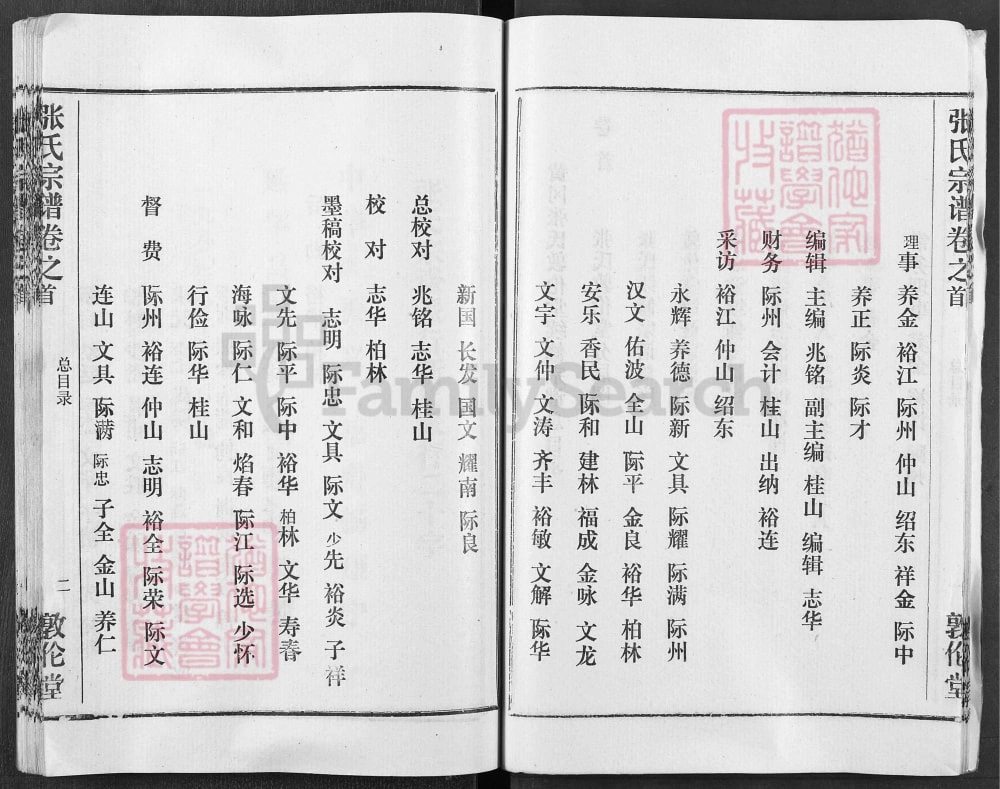 张氏宗谱卷之首
敦伦堂
理事 养金 裕江 际州 仲山 绍东 祥金 际中
养正 际炎 际才
编辑 主编 兆铭 副主编 桂山 编辑 志华
财务 际州 会计 桂山 出纳 裕连
采访 裕江 仲山 绍东
永辉 养德 际新 文具 际耀 际满 际州
汉文 佑波 全山 际平 金良 裕华 柏林
安乐 香民 际和 建林 福成 金咏 文龙
文宇 文仲 文涛 齐丰 裕敏 文解 际华
新国 长发 国文 耀南 际良
总校对 兆铭 志华 桂山
校对 志华 柏林
墨稿校对 志明 际忠 文具 际文 少先 裕炎 子祥
文先 际平 际中 裕华 柏林 文华 寿春
海咏 际仁 文和 焰春 际江 际选 少怀
行俭 际华 桂山
督费 际州 裕连 仲山 志明 裕全 际荣 际文
连山 文具 际满 际忠 子全 金山 养仁
张氏宗谱卷之首
总目录
二
敦伦堂
FamilySearch